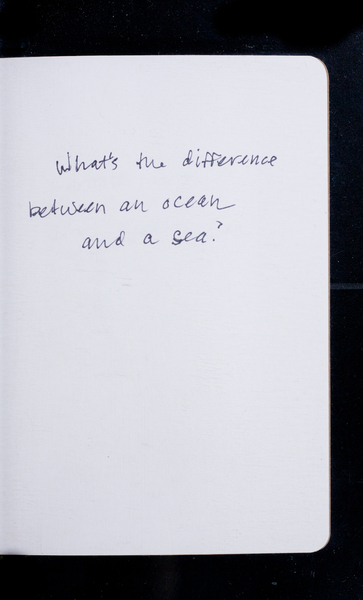 What's the difference
between an ocean
and a sea?